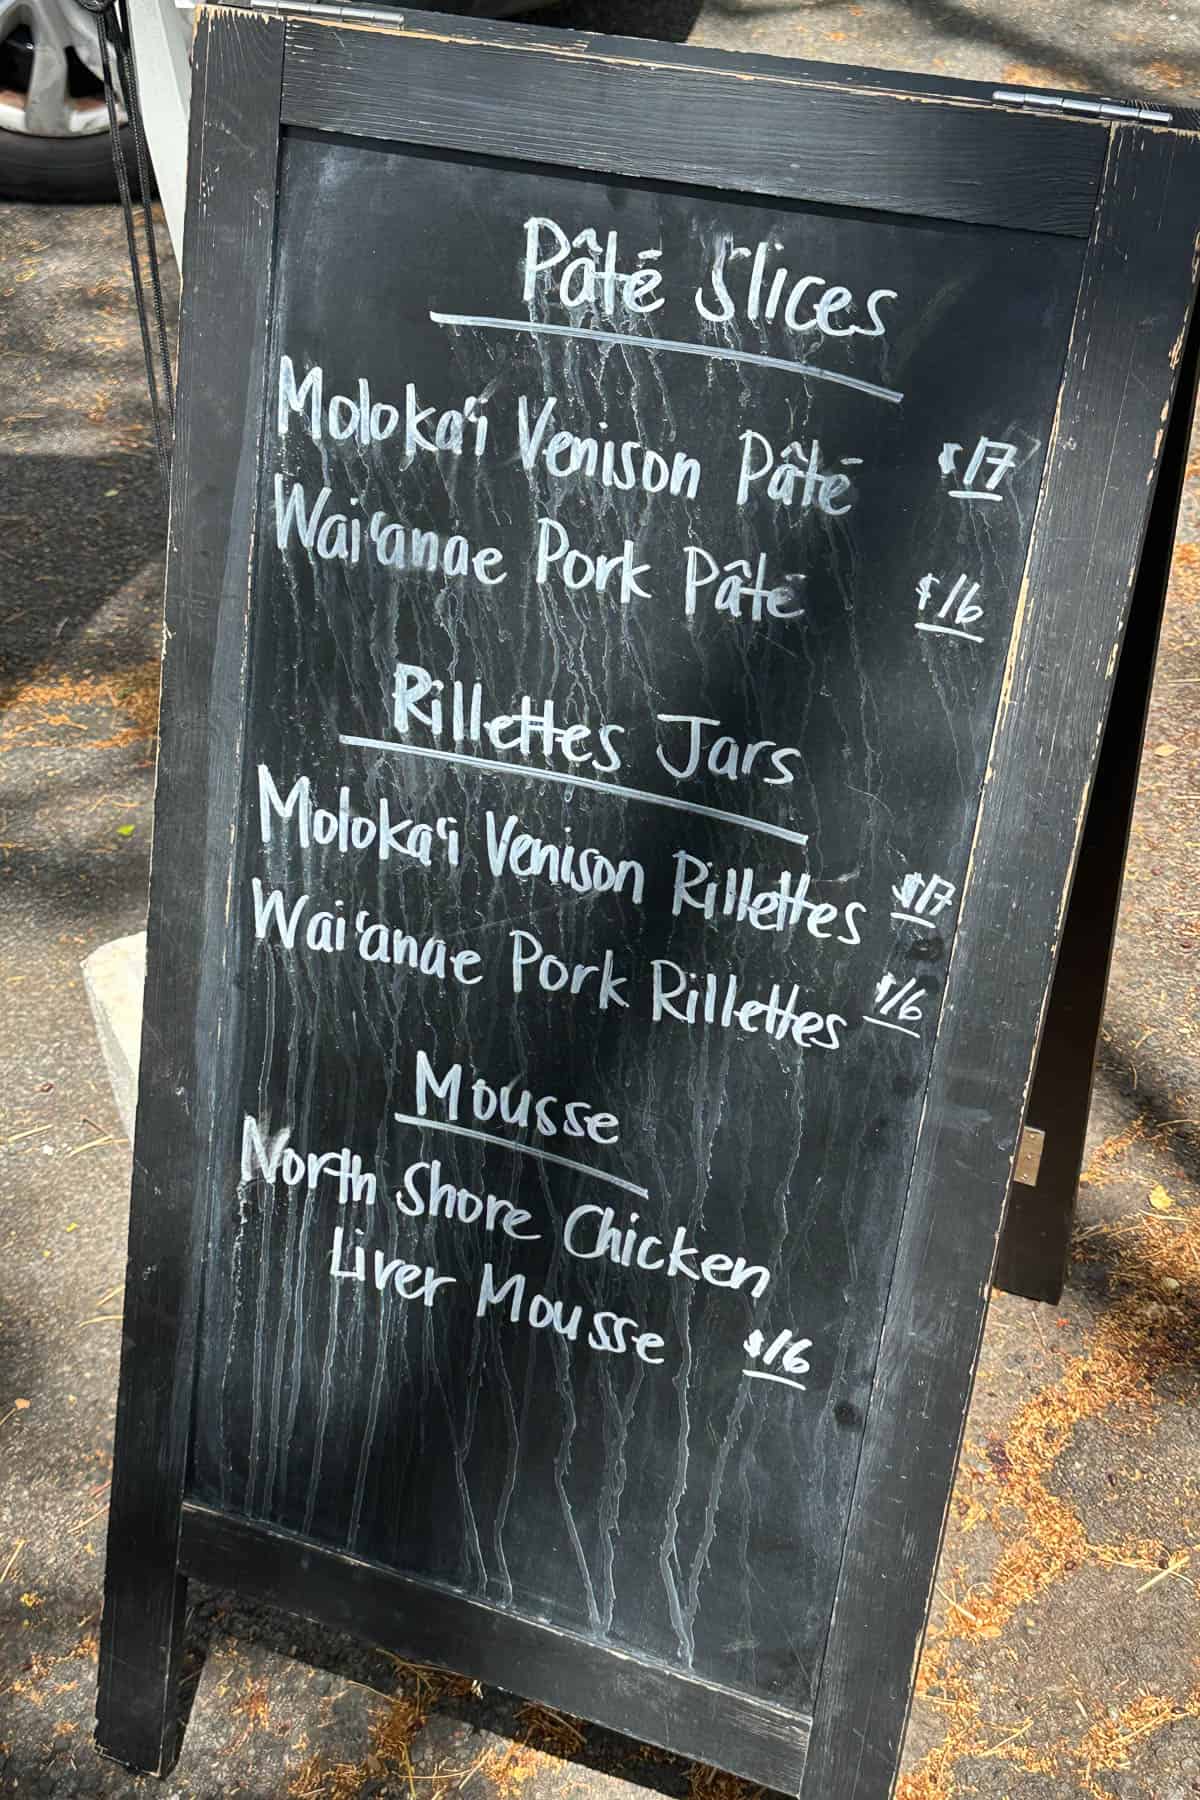 Pâté Slices
Moloka'i Venison Pâté $17
Wai'anae Pork Pâté $16
Rillettes Jars
Moloka'i Venison Rillettes $17
Wai'anae Pork Rillettes $16
Mousse
North Shore Chicken
Liver Mousse $16